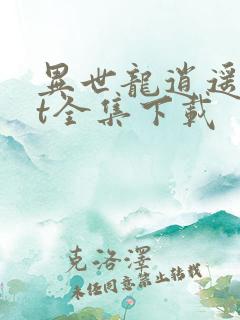 異世龍逍遥
t全集下载
克洛澤
未经同意禁止转载